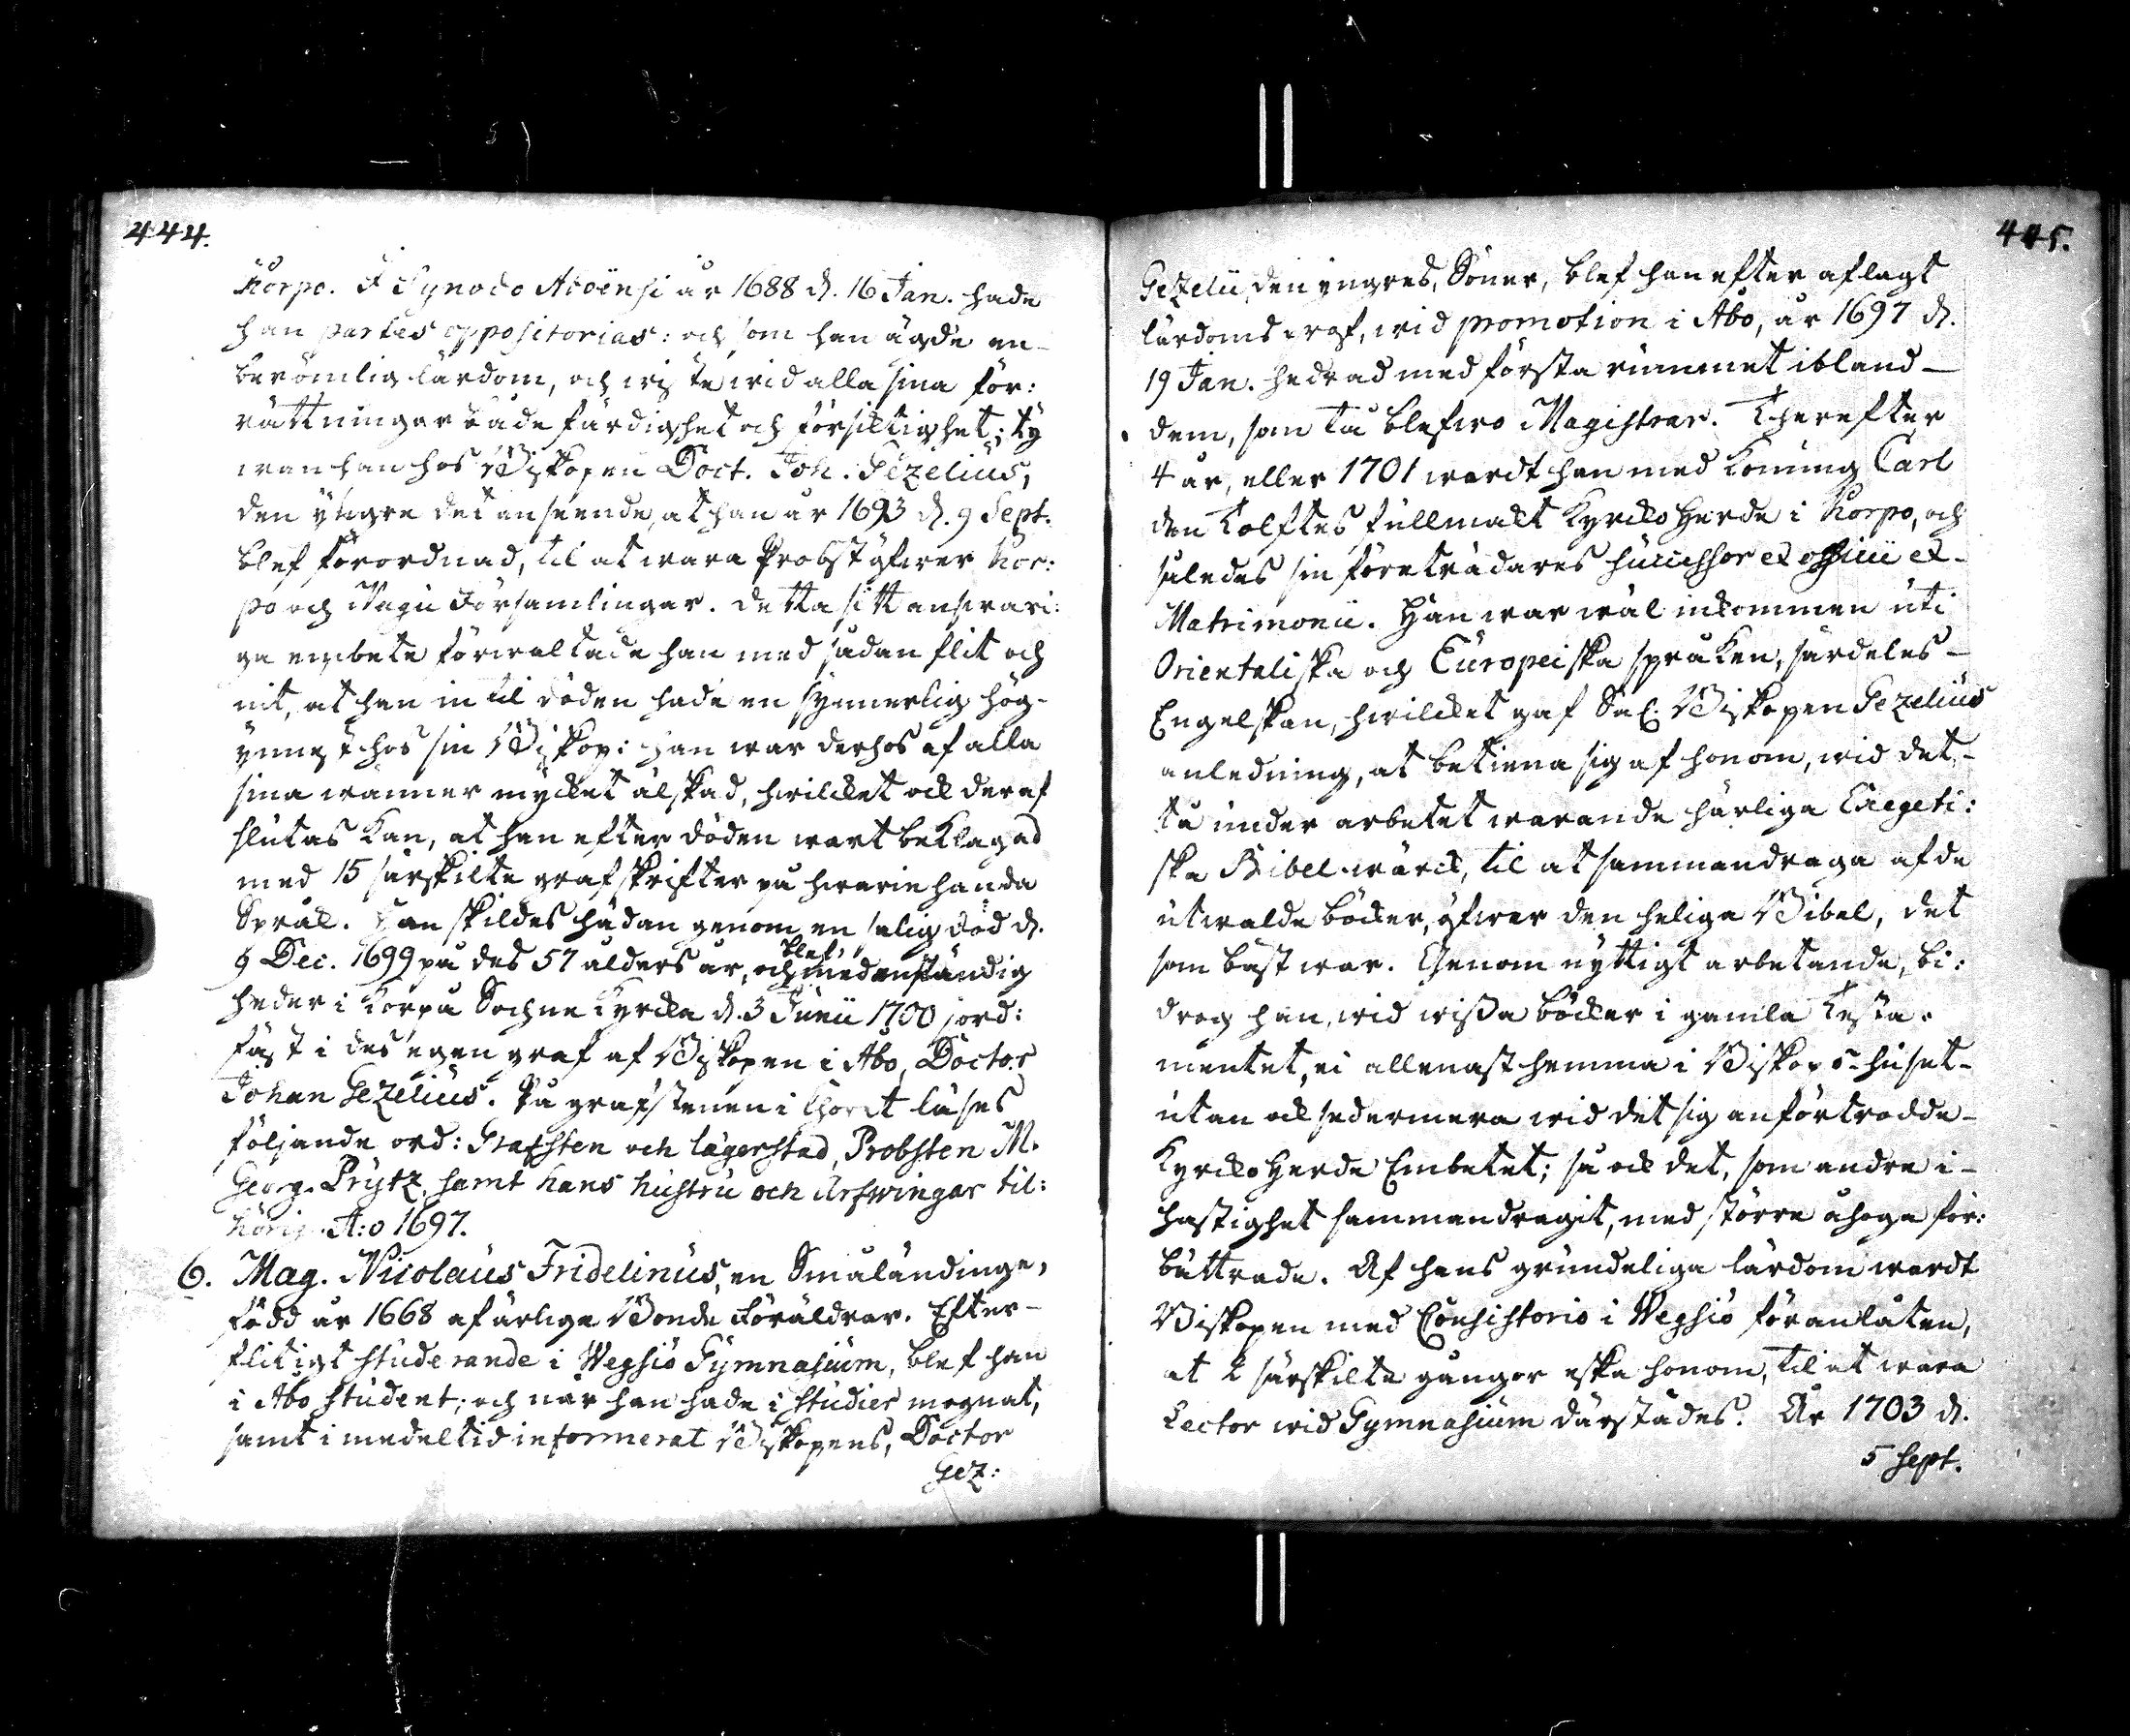 444.
Korpo. I Synodo Aboënsi år 1688 d. 16 Jan. hade
han partes oppositorias: och som han ägde en
berömlig lärdom, och wiste wid alla sina för:
rättningar både färdighet och försiktighet; ty
wan han hos Biskopen Doct. Joh. Gezelius,
den yngre det anseende, at han år 1693 d. 9 Sept.
blef förordnad, til at wara Probst öfwer Kor:
po och Nagu Församlingar. Detta sitt answari:
ga embete förwaltade han med sådan flit och
nit, at han in til döden hade en synnerlig hög-
ynnest hos sin Biskop: han war derhos af alla
sina wänner mycket älskad, hwilcket ock deraf
slutas kan, at han efter döden wart beklagad
med 15 särskilte grafskrifter på hwariehanda
Språk. Han skildes hädan genom en salig död d.
9 Dec. 1699 på des 57 ålders år, och blef med anständig
heder i Korpå Sochne Kyrcka d. 3 Junii 1700 jord:
fäst i des egen graf af Biskopen i Åbo, Doctor
Johan Gezelius. På grafstenen i Choret läses
följande ord: Grafsten och lägerstad, Probsten M.
Georg. Prytz, samt hans hustru och Arfwingar til:
hörig. A:o 1697.
6. Mag. Nicolaus Fridelinus, en Småländinge,
född år 1668 af ärliga Bonde Föräldrar. Efter
flitigt studerande i Wegsiö Gymnasium, blef han
i Åbo student; och när han hade i studier mognat,
samt i medeltid informerat Biskopens, Doctor
Gez:
445.
Gezelii, den yngres, Söner, blef han efter aflagt
lärdoms prof, wid promotion i Åbo, år 1697 d.
19 Jan. hedrad med första rummet ibland
dem, som tå blefwo Magistrar. Therefter
4 år, eller 1701 wardt han med Konung Carl
den Tolftes fullmakt Kyrcko Herde i Korpo, och
således sin företrädares successor et officii et
Matrimonii. Han war wäl inkommen uti
Orientaliska och Europeiska språken, särdeles
Engelskan, hwilcket gaf Sal. Biskopen Gezelius
anledning, at betiena sig af honom, wid det
tå under arbetet warande härliga Exegeti:
ska Bibel-wärck, til at sammandraga af de
utwalde böcker, öfwer den helige Bibel, det
som bäst war. Genom nyttigt arbetande, bi:
drog han, wid wissa böcker i gamla Testa-
mentet, ei allenast hemma i Biskops-huset
utan ock sedermera wid det sig anförtrodde
Kyrcko Herde Embetet; så ock det, som andre i
hastighet sammandragit, med större åhoga för:
bättrade. Af hans grundeliga lärdom wardt
Biskopen med Consistorio i Wegsiö föranlåten,
at 2 särskilte gångor eska honom, til at wara
Lector wid Gymnasium därstädes. År 1703 d.
5 Sept.